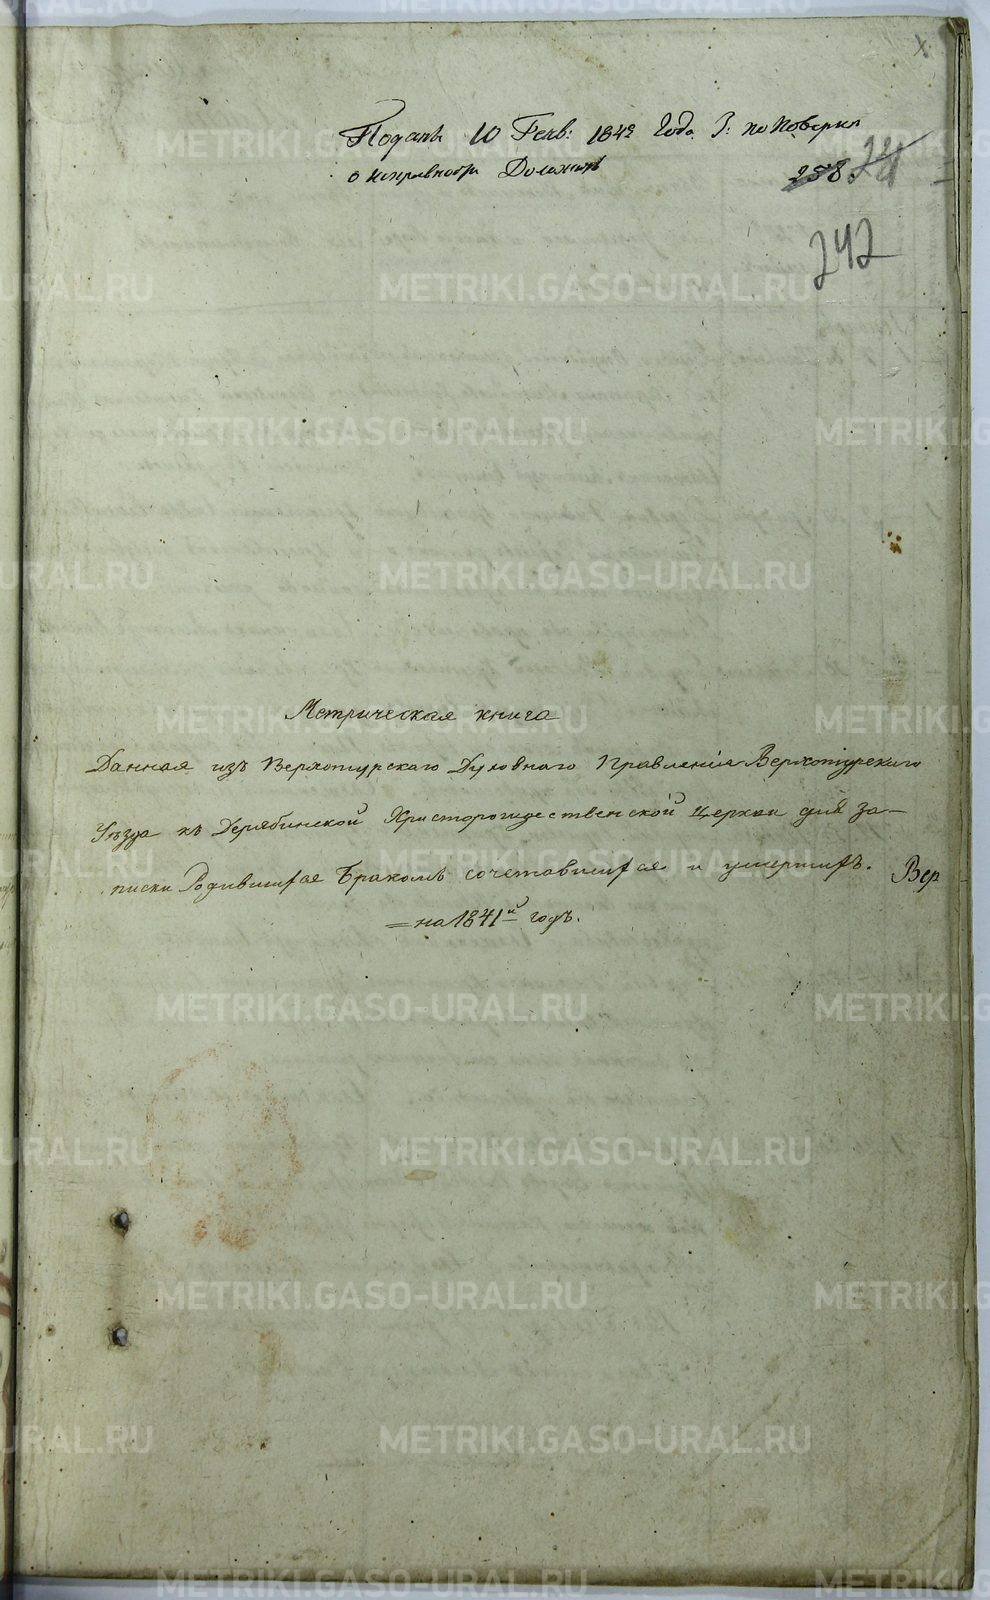 Поданъ 10 Генв: 1842 года З: по поверки
о исправности Доложить
258.
241
242
Метрическая книга
Данная изъ Верхотурскаго Духовнаго Правления Верхотурскаго
Уѣзда къ Дерябинской Христорождественской церкви для за-
писки Родившихся Бракомъ сочетавшихся и умершихъ. Вер
= на 1841й годъ.
METRIKI.GASO-URAL.RU